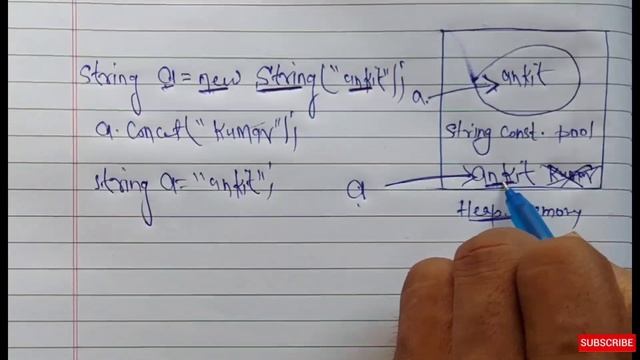 String a = new String("ankit");
a.concat("Kumar");
String a = "ankit";
a.
ankit
String const. pool
a
ankit Kumar
Heap memory
SUBSCRIBE